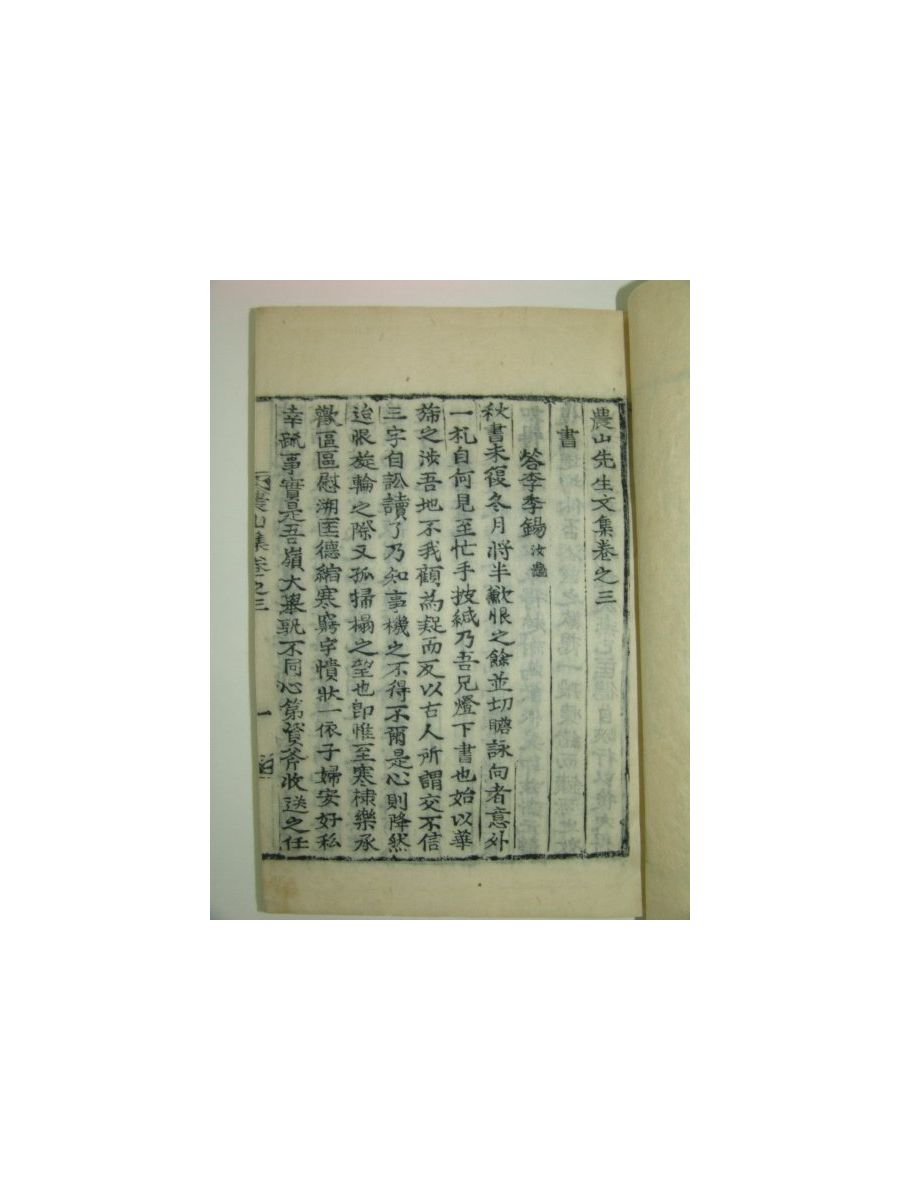 農山先生文集卷之三
書
答李季鍚汝
秋書未復冬月將半歉恨之餘並切瞻詠向者意外
一札自何見至忙手披緘乃吾兄燈下書也始以華
旆之涉吾地不我顧爲疑而反以古人所謂交不信
三字自訟讀了乃知事機之不得不爾是心則降然
追恨旋輪之際又孤掃榻之望也卽惟至寒棣樂承
歡區區慰溯國德縮寒窮字憒狀一依子婦安好私
幸疏事實是吾嶺大擧孰不同心第資斧收送之任
農山集卷之三 一